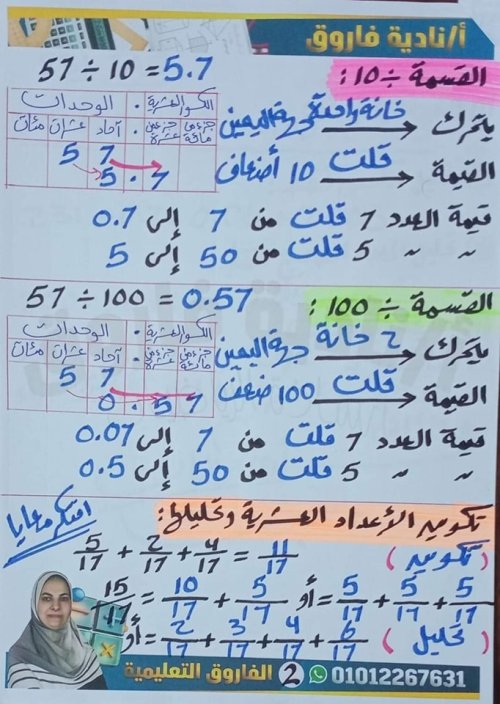 أ/نادية فاروق
القسمة ÷ 10 :
57 ÷ 10 = 5.7
يتحرك ← خانة واحدة جهة اليمين
القيمة ← قلت 10 أضعاف
الكسور العشرية . الوحدات
جزء من مائة جزء من عشرة . آحاد عشرات مئات
5 7
5 . 7
قيمة العدد 7 قلت من 7 إلى 0.7
〃 〃 5 قلت من 50 إلى 5
القسمة ÷ 100 :
57 ÷ 100 = 0.57
يتحرك ← 2 خانة جهة اليمين
القيمة ← قلت 100 ضعف
الكسور العشرية . الوحدات
جزء من مائة جزء من عشرة . آحاد عشرات مئات
5 7
0 . 5 7
قيمة العدد 7 قلت من 7 إلى 0.07
〃 〃 5 قلت من 50 إلى 0.5
تكوين الأعداد العشرية وتحليلها :
افتكر معايا
(تكوين) 5/17 + 2/17 + 4/17 = 11/17
15/17 = 10/17 + 5/17 أو = 5/17 + 5/17 + 5/17
(تحليل) أو = 2/17 + 3/17 + 4/17 + 6/17
الفاروق التعليمية 2 01012267631